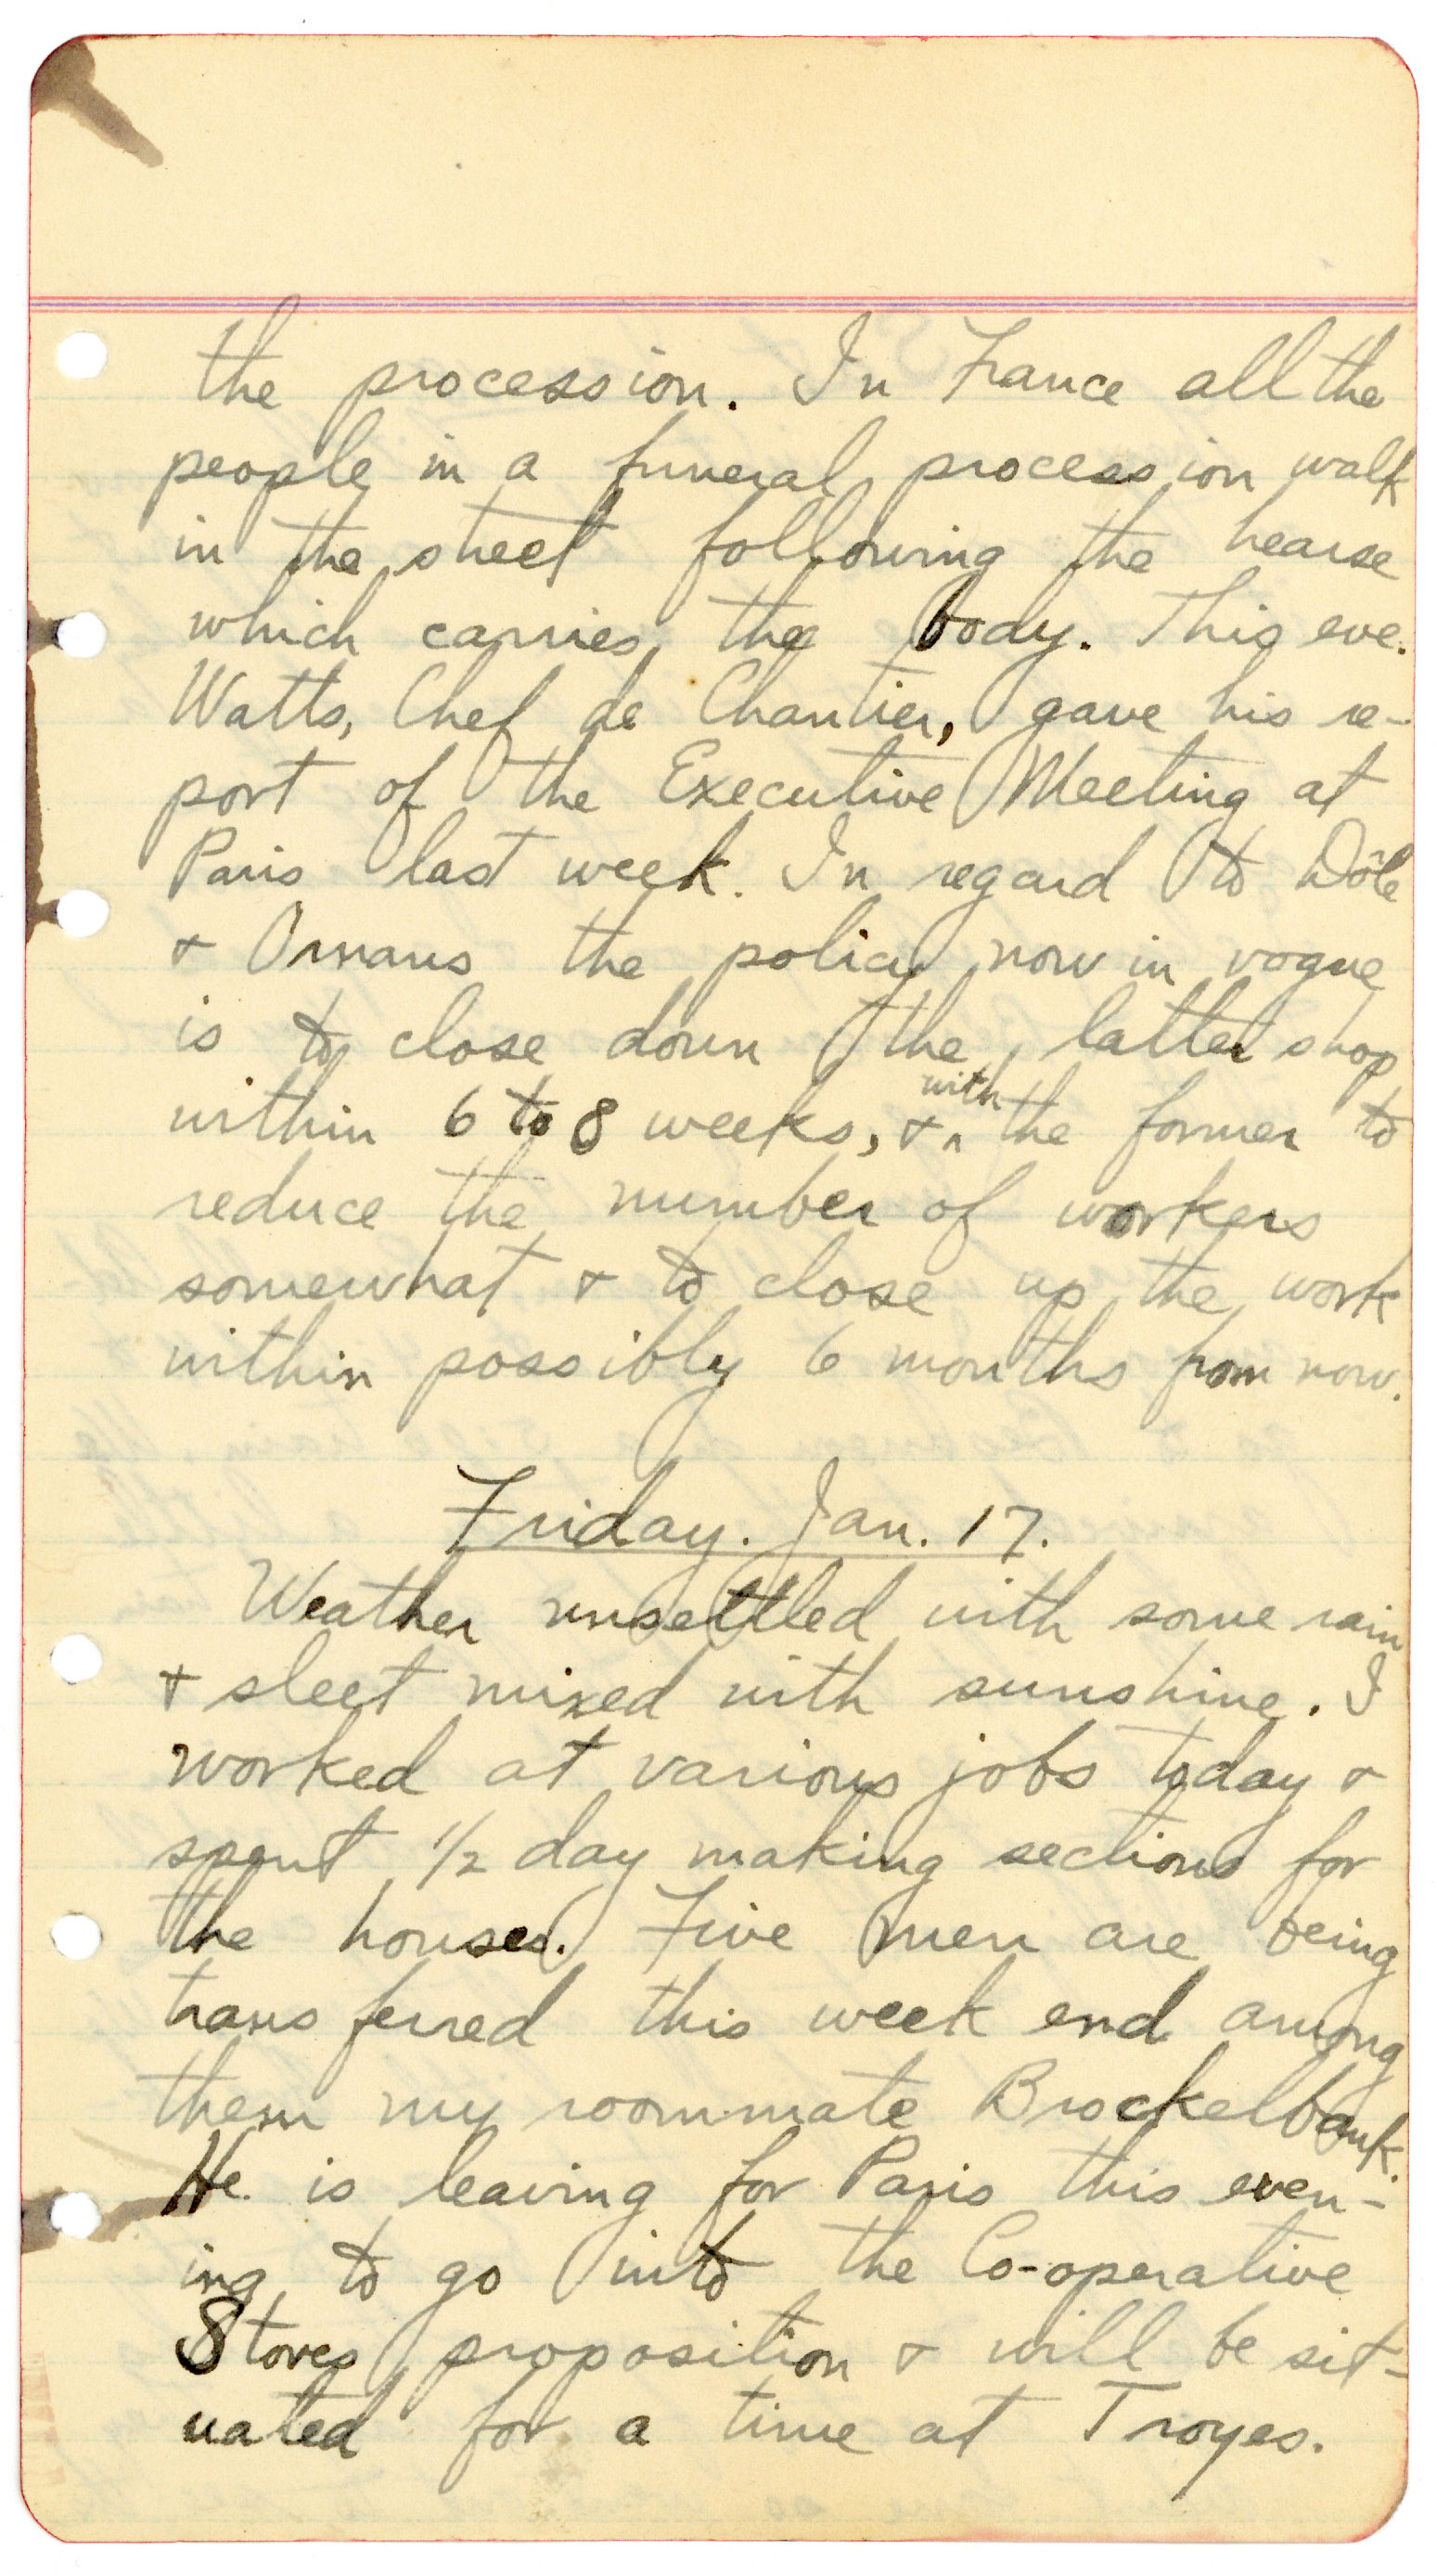 the procession. In France all the
people in a funeral procession walk
in the street following the hearse
which carries the body. This eve.
Watts, Chef de Chantier, gave his re-
port of the Executive Meeting at
Paris last week. In regard to Dôle
+ Ornans the policy now in vogue
is to close down the latter shop
within 6 to 8 weeks, + with the former to
reduce the number of workers
somewhat + to close up the work
within possibly 6 months from now.
Friday. Jan. 17.
Weather unsettled with some rain
+ sleet mixed with sunshine. I
worked at various jobs today +
spent 1/2 day making sections for
the houses. Five men are being
transferred this week end among
them my roommate Brockelbank.
He is leaving for Paris this even-
ing to go into the Co-operative
Stores proposition + will be sit-
uated for a time at Troyes.